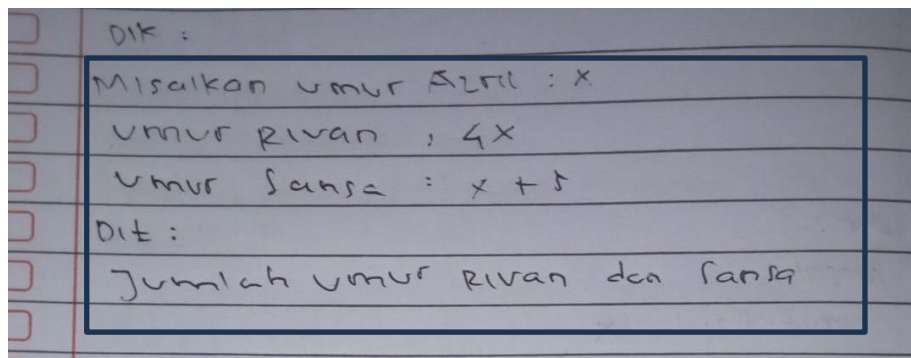 Dik :
Misalkan umur Azril : x
umur Rivan : 4x
umur Sansa : x + 5
Dit :
Jumlah umur Rivan dan Sansa